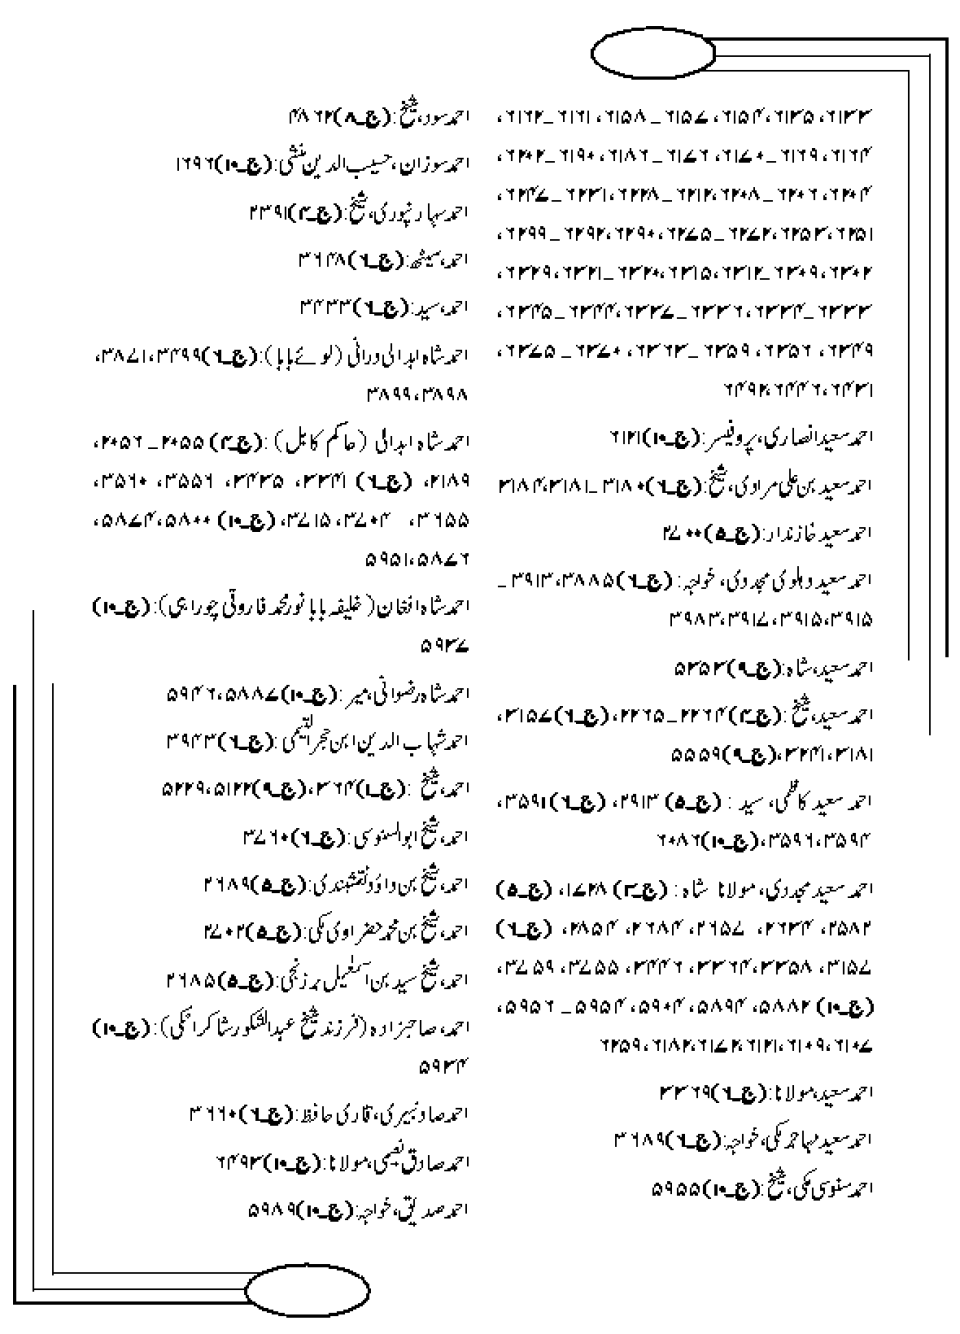 ۶۱۳۳، ۶۱۳۵، ۶۱۵۴، ۶۱۵۷ـ ۶۱۵۸، ۶۱۶۱ـ ۶۱۶۲،
۶۱۶۴، ۶۱۶۹ـ ۶۱۷۰، ۶۱۷۶ـ ۶۱۸۶، ۶۱۹۰ـ ۶۲۰۲،
۶۲۰۴، ۶۲۰۶ـ ۶۲۰۸، ۶۲۱۲ـ ۶۲۲۸، ۶۲۳۱ـ ۶۲۴۷،
۶۲۵۱، ۶۲۵۳، ۶۲۷۲ـ ۶۲۷۵، ۶۲۹۰، ۶۲۹۲ـ ۶۲۹۹،
۶۳۰۲، ۶۳۰۹ـ ۶۳۱۲، ۶۳۱۵، ۶۳۲۰ـ ۶۳۲۱، ۶۳۲۹،
۶۳۳۳ـ ۶۳۳۴، ۶۳۳۶ـ ۶۳۳۷، ۶۳۴۴ـ ۶۳۴۵،
۶۳۴۹، ۶۳۵۶، ۶۳۵۹ـ ۶۳۶۳، ۶۳۷۰ـ ۶۳۷۵،
۶۴۳۱، ۶۴۴۶، ۶۴۹۲
احمد سعید انصاری، پروفیسر: (ج۔۱۰) ۶۱۲۱
احمد سعید بن علی مرادی، شیخ: (ج۔۶) ۳۱۸۰ـ ۳۱۸۱، ۳۱۸۴
احمد سعید خازندار: (ج۔۵) ۲۷۰۰
احمد سعید دہلوی مجددی، خواجہ: (ج۔۶) ۳۸۸۵، ۳۹۱۳ـ
۳۹۱۵، ۳۹۱۵، ۳۹۱۷، ۳۹۸۳
احمد سعید، شاہ: (ج۔۹) ۵۳۵۳
احمد سعید، شیخ: (ج۔۴) ۲۲۶۴ـ ۲۲۶۵، (ج۔۶) ۳۱۵۷،
۳۱۸۱، ۳۲۴۱، (ج۔۹) ۵۵۵۹
احمد سعید کاظمی، سید: (ج۔۵) ۲۹۱۳، (ج۔۶) ۳۵۹۱،
۳۵۹۴، ۳۵۹۶، (ج۔۱۰) ۶۰۸۶
احمد سعید مجددی، مولانا شاہ: (ج۔۳) ۱۷۲۸، (ج۔۵)
۲۵۸۲، ۲۶۳۴، ۲۶۵۷، ۲۶۸۴، ۲۸۵۴، (ج۔۶)
۳۱۵۷، ۳۳۵۸، ۳۳۶۴، ۳۴۴۶، ۳۷۵۵، ۳۷۵۹،
(ج۔۱۰) ۵۸۸۲، ۵۸۹۴، ۵۹۰۴، ۵۹۵۴ـ ۵۹۵۶،
۶۱۰۷، ۶۱۰۹، ۶۱۲۱، ۶۱۷۲، ۶۱۸۲، ۶۲۵۹
احمد سعید، مولانا: (ج۔۶) ۳۳۶۹
احمد سعید مہاجر مکی، خواجہ: (ج۔۶) ۳۶۸۹
احمد سنوسی مکی، شیخ: (ج۔۱۰) ۵۹۵۵
احمد سود، شیخ: (ج۔۸) ۴۸۶۲
احمد سوزان، حسیب الدین منشی: (ج۔۱۰) ۶۲۹۶
احمد سہارنپوری، شیخ: (ج۔۴) ۲۳۹۱
احمد، سیٹھ: (ج۔۶) ۳۶۴۸
احمد، سید: (ج۔۶) ۳۴۳۳
احمد شاہ ابدالی درانی (لوئے بابا): (ج۔۶) ۳۴۹۹، ۳۸۷۱،
۳۸۹۸، ۳۸۹۹
احمد شاہ ابدالی (حاکم کابل): (ج۔۴) ۲۰۵۵ـ ۲۰۵۶،
۲۱۸۹، (ج۔۶) ۳۳۴۱، ۳۴۳۵، ۳۵۵۶، ۳۵۶۰،
۳۶۵۵، ۳۷۰۴، ۳۷۱۵، (ج۔۱۰) ۵۸۰۰، ۵۸۷۴،
۵۸۷۶، ۵۹۵۱
احمد شاہ افغان (خلیفہ بابا نور محمد فاروقی چوراہی): (ج۔۱۰)
۵۹۳۷
احمد شاہ رضوانی، میر: (ج۔۱۰) ۵۸۸۷، ۵۹۴۶
احمد شہاب الدین ابن حجر الہیتمی: (ج۔۶) ۳۹۴۳
احمد، شیخ: (ج۔۱) ۳۶۴، (ج۔۹) ۵۱۲۲، ۵۲۲۹
احمد، شیخ ابوالسنوسی: (ج۔۶) ۳۷۶۰
احمد، شیخ بن داؤد نقشبندی: (ج۔۵) ۲۶۸۹
احمد، شیخ بن محمد حضراوی مکی: (ج۔۵) ۲۷۰۲
احمد، شیخ سید بن اسمٰعیل برزنجی: (ج۔۵) ۲۶۸۵
احمد، صاحبزادہ (فرزند شیخ عبدالشکور شاکر اٹکی): (ج۔۱۰)
۵۹۳۴
احمد صاونبیری، قاری حافظ: (ج۔۶) ۳۶۶۰
احمد صادق نصیمی، مولانا: (ج۔۱۰) ۶۴۹۳
احمد صدیق، خواجہ: (ج۔۱۰) ۵۹۸۹